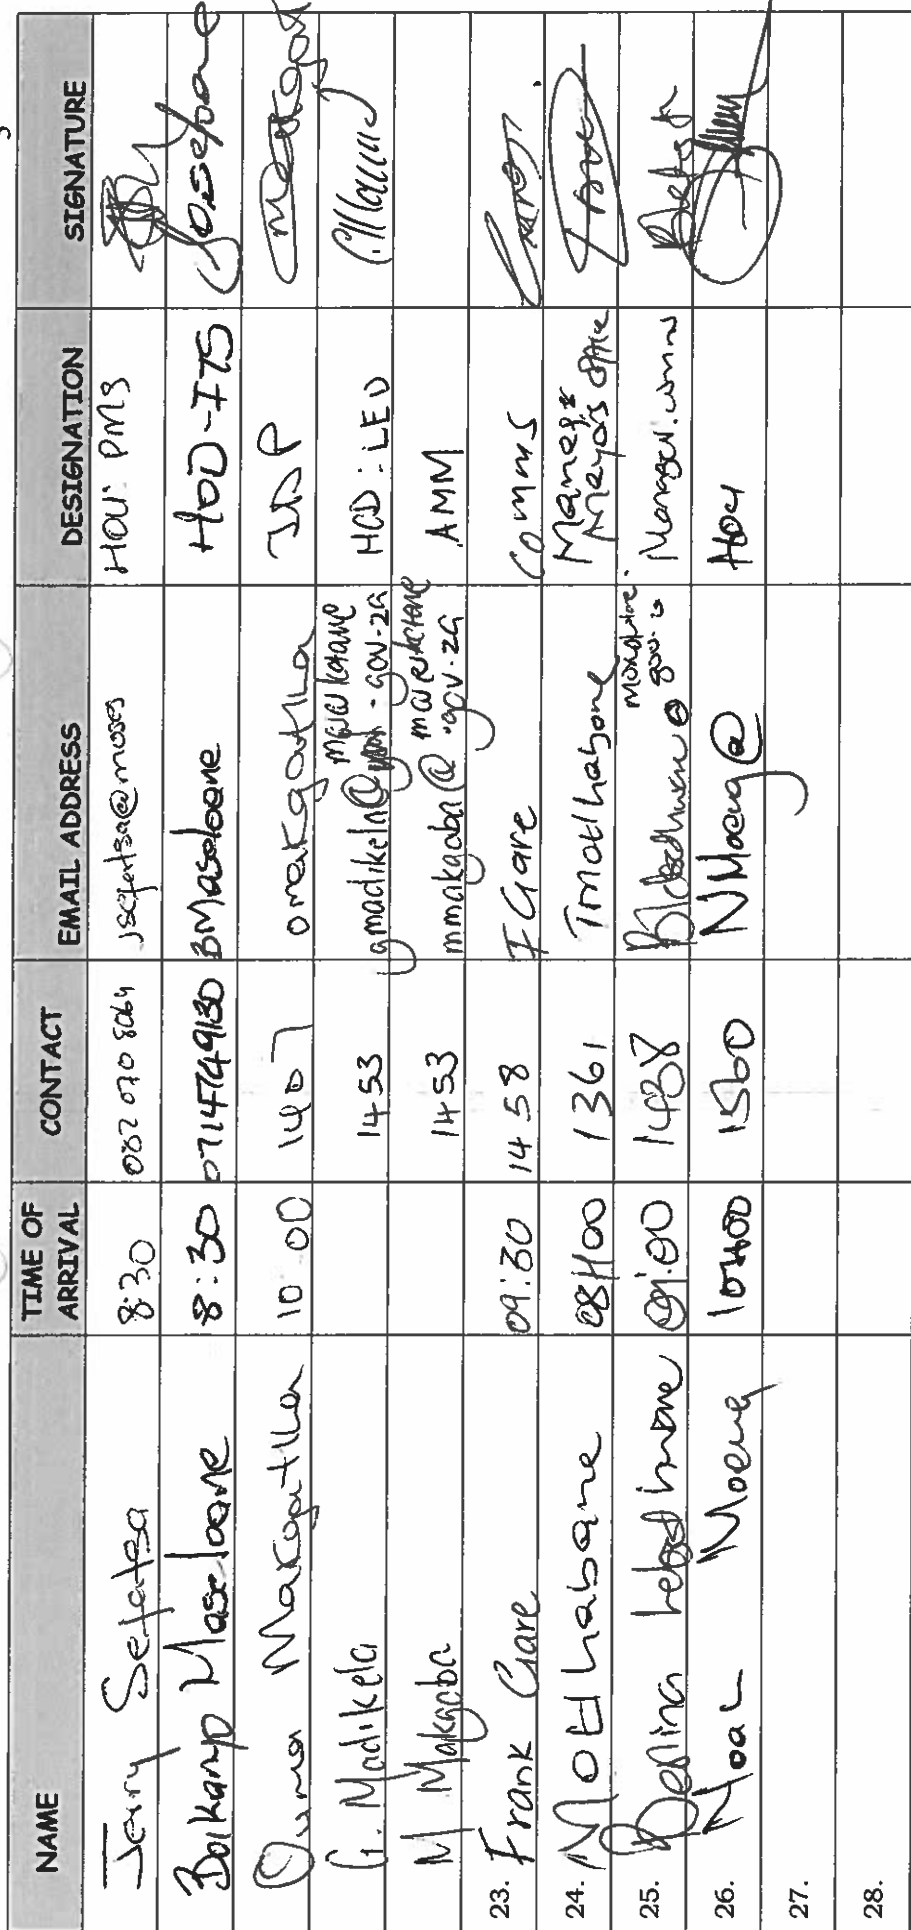 NAME TIME OF ARRIVAL CONTACT EMAIL ADDRESS DESIGNATION SIGNATURE
Jerry Sefatsa 8:30 082 070 8064 jsefatsa@moses HOU: PMS
Boikanyo Maseloane 8:30 0714749130 BMaseloane HOD-ITS
Ouma Makgatlha 10 00 1407 omakgatlha IDP
G. Madikela 1453 gmadikela@moseskotane.gov.za HOD: LED
M Makgoba 1453 mmakgoba@moseskotane.gov.za AMM
23. Frank Gare 09:30 1458 FGare Comms
24. Motlhabane 08H00 1361 Tmotlhabane Manager Mayor's Office
25. 09:00 1487 Manager.
26. Moeng 10H00 1560 NMoeng@ HOU
27.
28.